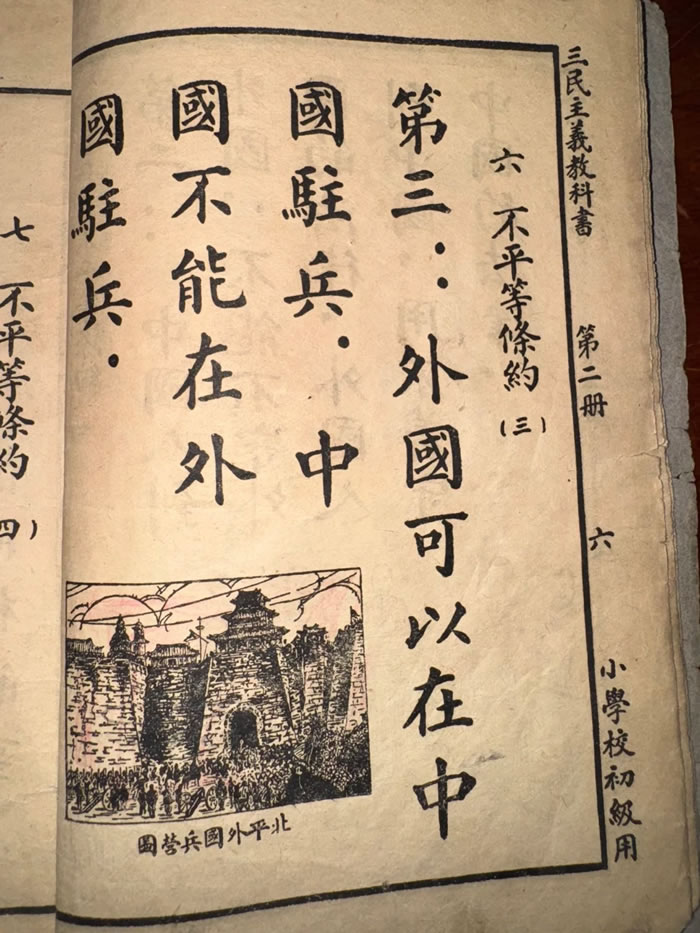 三民主義教科書 第二册 六 小學校初級用
六 不平等條約(三)
第三：外國可以在中
國駐兵．中
國不能在外
國駐兵．
北平外國兵營圖
七 不平等條約(四)